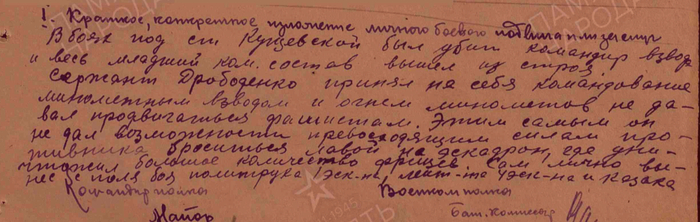 I. Краткое, конкретное изложение личного боевого подвига или заслуг
В боях под ст. Кущевской был убит командир взвода
и весь младший ком. состав вышел из строя,
Сержант Дрободенко принял на себя командование
минометным взводом и огнем минометов не да-
вал продвигаться фашистам. Этим самым он
не дал возможности превосходящим силам про-
тивника броситься лавой на эскадрон, где уни-
чтожил большое количество фрицев. Сам лично вы-
нес с поля боя политрука 1 эск-на, лейт-та 1 эск-на и казака
Командир полка Военком полка
Майор Бат. Комиссар
ПАМЯТЬ НАРОДА
1945